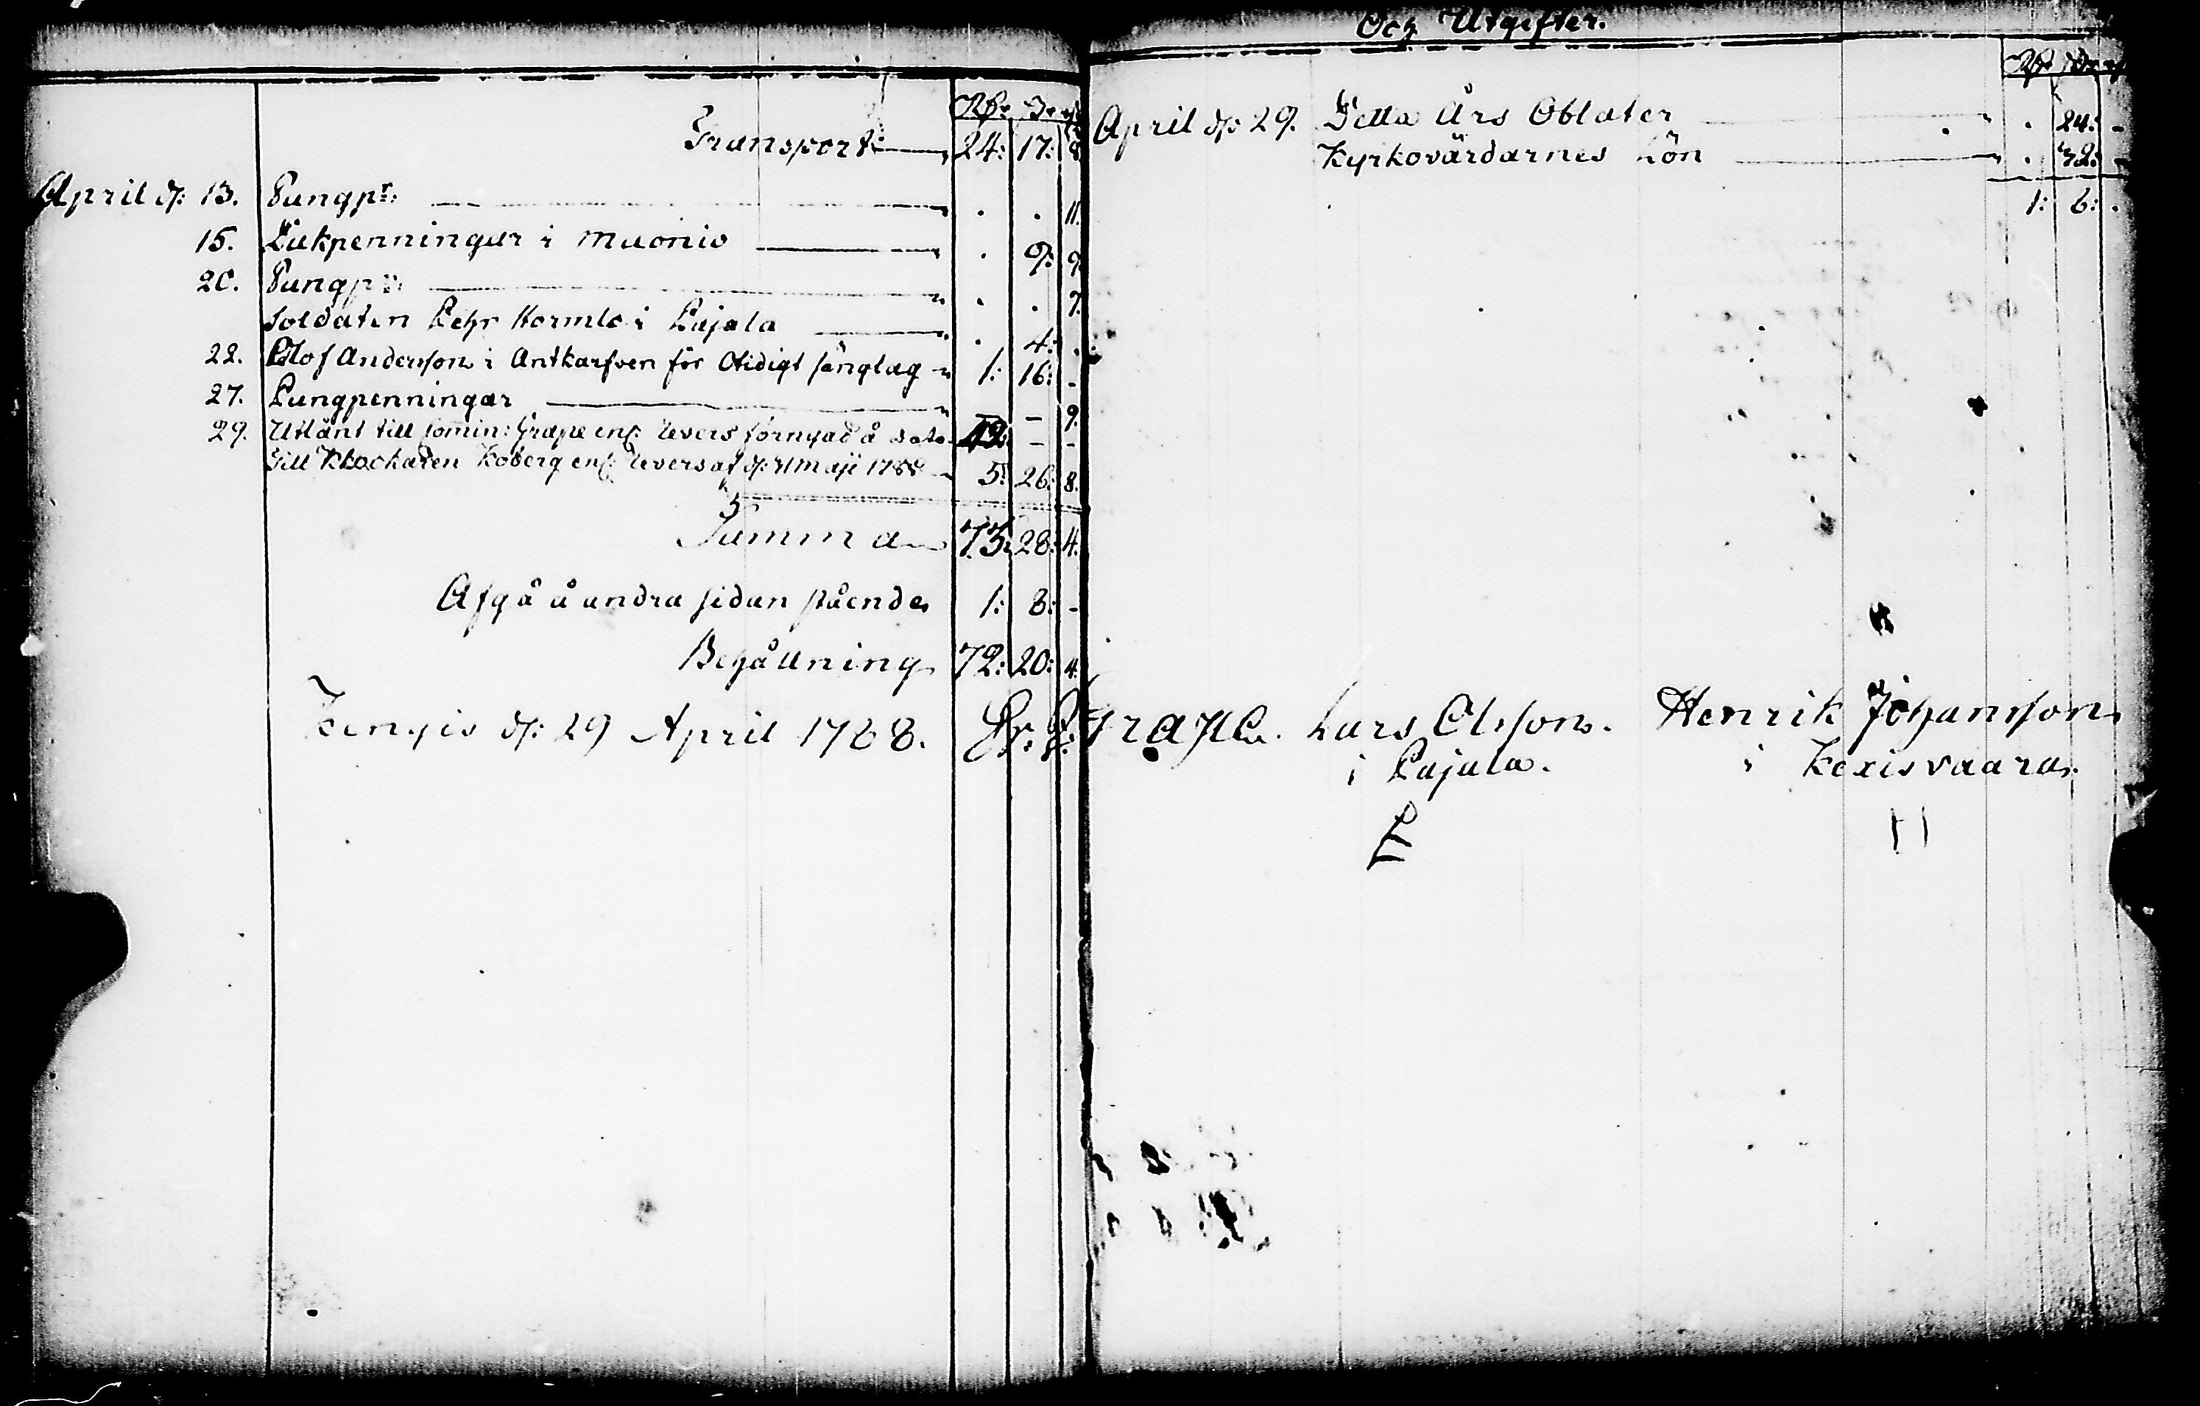 Rdr. s. rs.
Transport 24: 17: 8.
April d: 13. Pungpr: . . 11.
15. Likpenningar i Muonio . 9: 9.
20. Pungpr: . . 7.
Soldaten Pehr Hormlo i Pajala . 4: .
22. Olof Andersson i Antkarfven för Otidigt sänglag 1: 16: -
27. Pungpenningar - 9.
29. Utlänt till Comin: Grape enl: Revers förnyad å dato 42: - -
Till Klockaren Koberg enl: Revers af d: 21 Maji 1788 5: 26: 8.
Summa 73: 28: 4.
Afgå å andra sidan stående 1: 8: -
Behållning 72: 20: 4.
Kengis d: 29 April 1788.
Och Utgifter.
April d: 29. Detta Års Oblater . 24: -
Kyrkovärdarnes Lön . 32: -
1: 8: .
Grape. Lars Olsson. Henrik Johansson
i Pajala. i Kexisvaara.